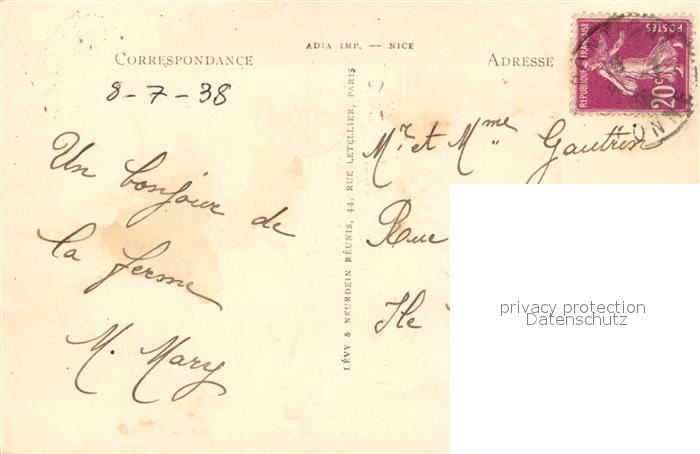 ADIA IMP. — NICE
CORRESPONDANCE
ADRESSE
8-7-38
Un bonjour de
la ferme
M. Mary
LÉVY & NEURDEIN RÉUNIS, 44, RUE LETELLIER, PARIS
Mr et Mme Gautrin
Rue
Ile
REPUBLIQUE FRANÇAISE
POSTES
20c
privacy protection
Datenschutz